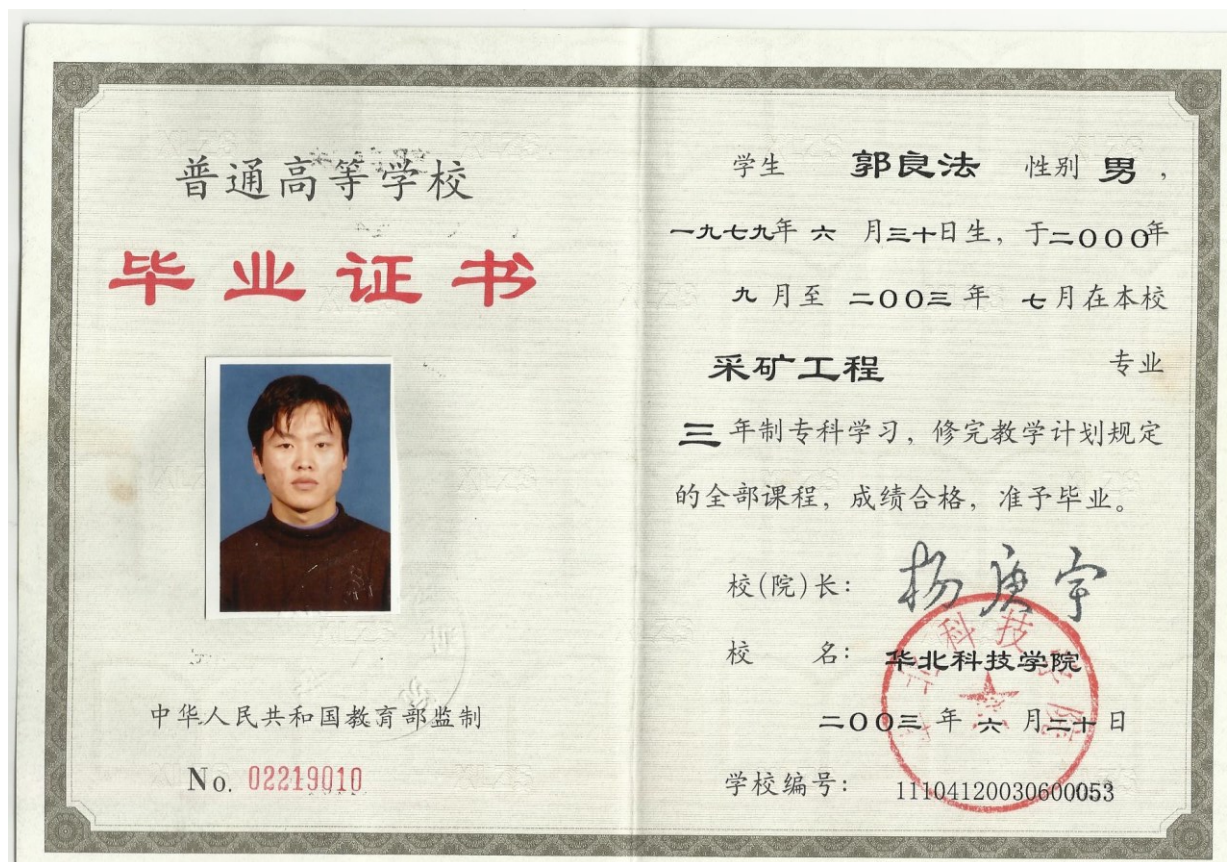 普通高等学校
毕业证书
中华人民共和国教育部监制
No. 02219010
学生 郭良法 性别 男，
一九七九年 六 月三十日生，于二000年
九 月至 二00三 年 七月在本校
采矿工程 专业
三 年制专科学习，修完教学计划规定
的全部课程，成绩合格，准予毕业。
校(院)长： 杨庚宇
校 名： 华北科技学院
二00三 年 六 月二十日
学校编号： 11104120030600053